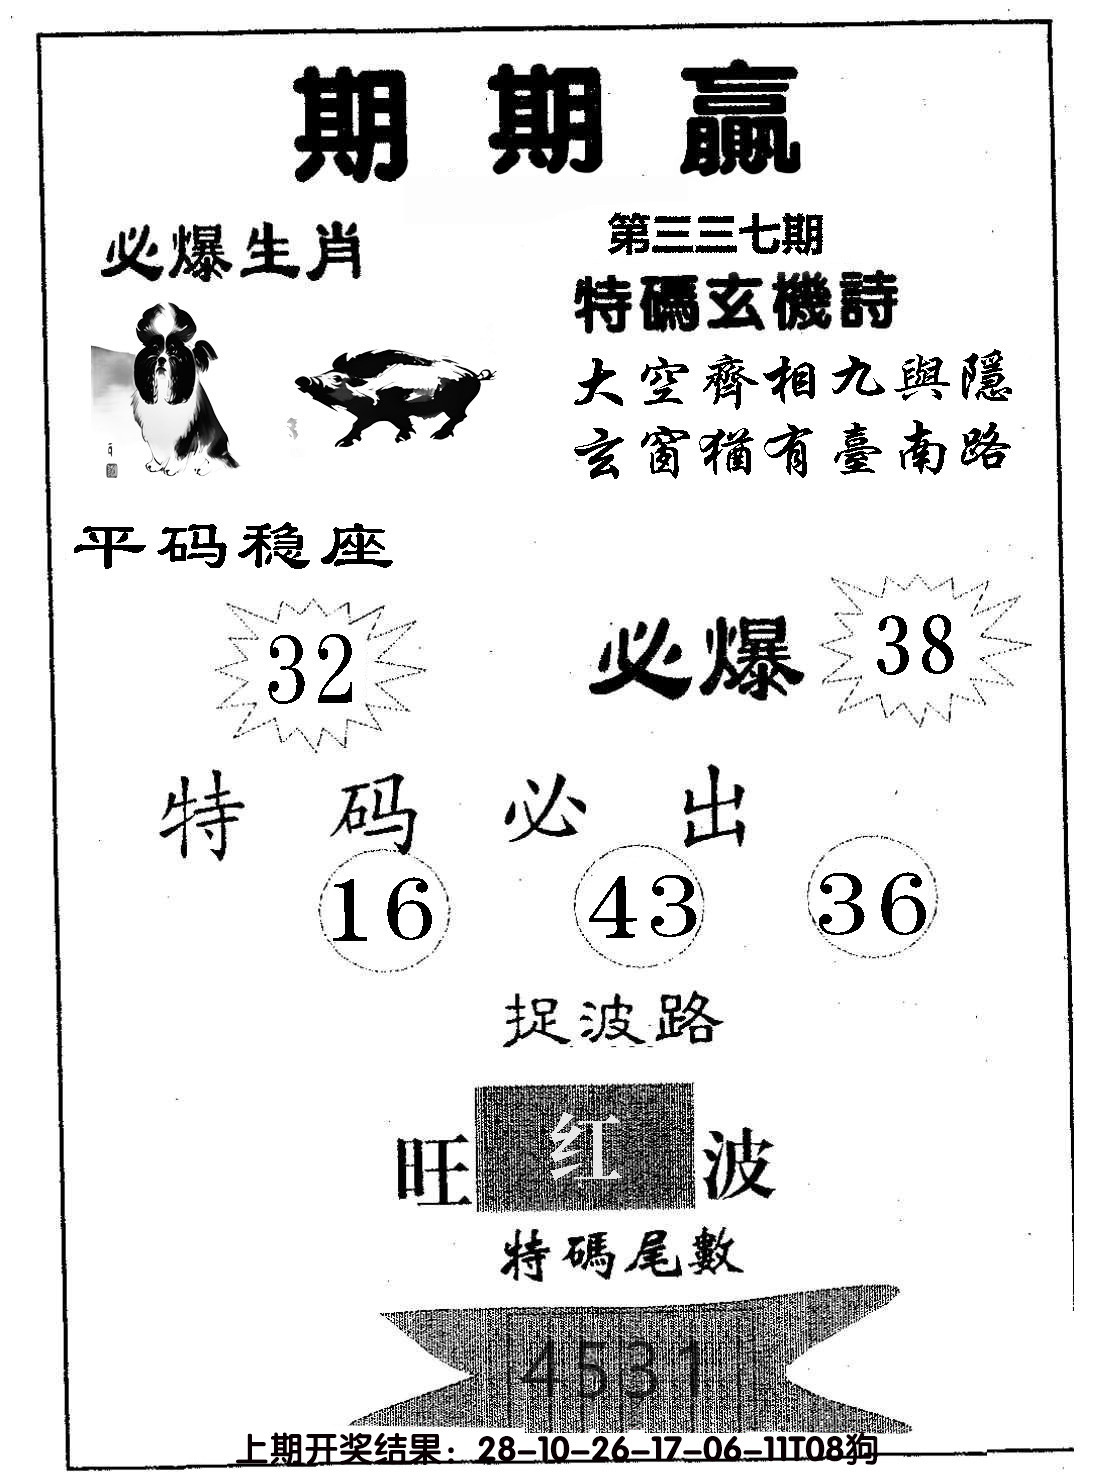 期期赢
必爆生肖
第三三七期
特碼玄機詩
大空齊相九與隱
玄窗猶有臺南路
平码稳座
32
必爆 38
特码必出
16 43 36
捉波路
旺红波
特碼尾數
4531
上期开奖结果：28-10-26-17-06-11T08狗